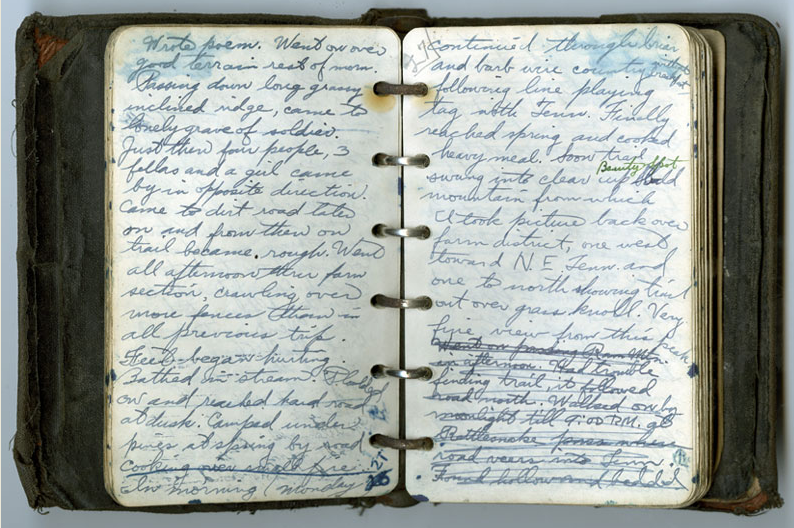 Wrote poem. Went on over
good terrain rest of morn.
Passing down long grassy
inclined ridge, came to
lonely grave of soldier.
Just then four people, 3
fellas and a girl came
by in opposite direction.
Came to dirt road later
on and from then on
trail became rough. Went
all afternoon thru farm
section, crawling over
more fences than in
all previous trip.
Feet began hurting.
Bathed in stream. Plodded
on and reached hard road
at dusk. Camped under
pines at spring by road
Cooking over small fire.
21
In morning (Monday
continued through brier
and barb wire country without breakfast
following line playing
tag with Tenn. Finally
reached spring and cooked
heavy meal. Soon trail
Beauty Spot
swung into clear up bald
mountain from which
I took picture back over
farm district, one west
toward N.E. Tenn. and
one to north showing trail
out over grass knoll. Very
fine view from this
Went on passing
in afternoon. Had trouble
finding trail, it followed
road north. Walked on by
moonlight till 9:00 P.M. at
Rattlesnake
road veers into Tenn.
Found hollow and